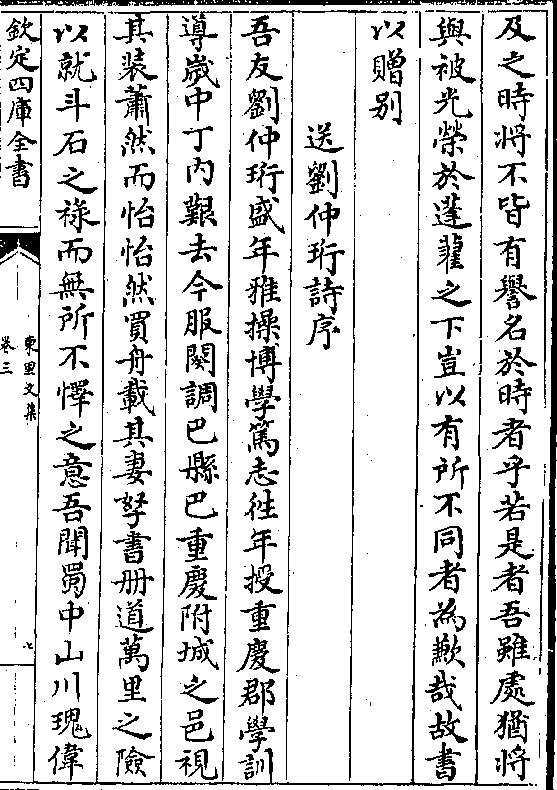 及之時將不皆有譽名於時者乎若是者吾雖處猶將
與被光榮於蓬雚之下豈以有所不同者為歉哉故書
以贈别
送劉仲珩詩序
吾友劉仲珩盛年雅操博學篤志徃年授重慶郡學訓
導歲中丁内艱去今服闋調巴縣巴重慶附城之邑視
其装蕭然而怡怡然買舟載其妻孥書册道萬里之險
以就斗石之禄而無所不懌之意吾聞蜀中山川瑰偉
欽定四庫全書
東里文集
卷三
七